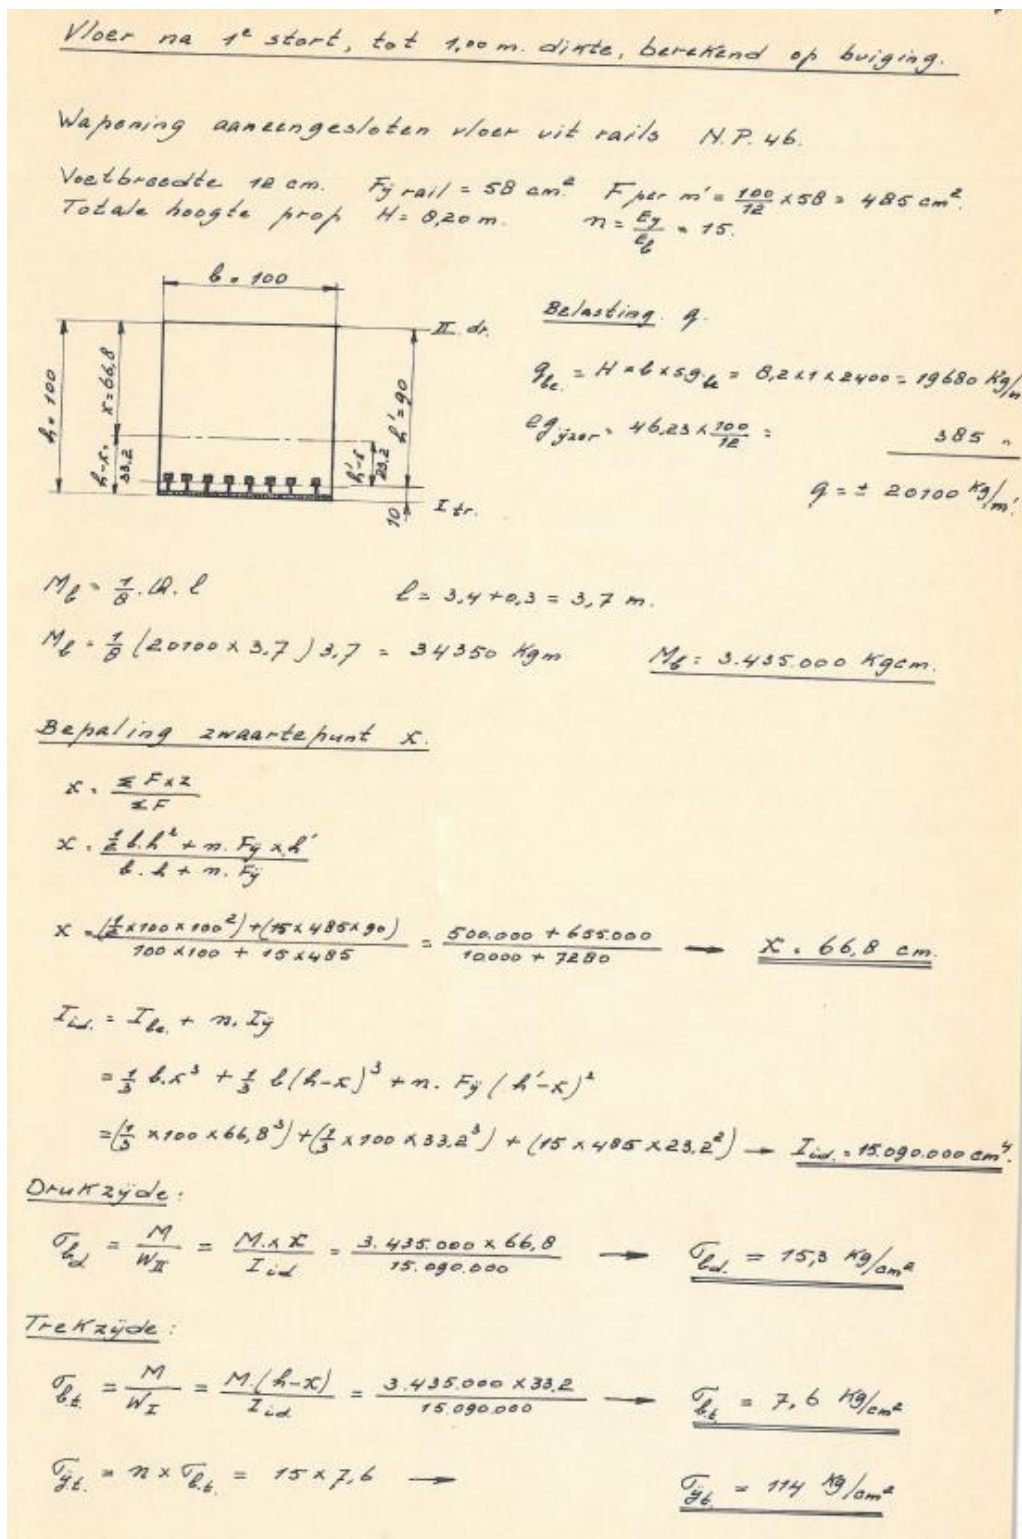 Vloer na 1e stort, tot 1,00 m. dikte, berekend op buiging.
Wapening aaneengesloten vloer uit rails N.P. 46.
Voetbreedte 12 cm. Fij rail = 58 cm² F per m' = 100/12 x 58 = 485 cm².
Totale hoogte prop H = 8,20 m. n = Ey/Eb = 15.
b = 100
h = 100
x = 66,8
h-x = 33,2
h' = 90
h'-x 23,2
10
II dr.
I tr.
Belasting q.
qbe. = H x b x sg.be = 8,2 x 1 x 2400 = 19680 Kg/m
eg ijzer = 46,23 x 100/12 = 385 "
q = ± 20100 Kg/m'.
Mb = 1/8 . Q. l l = 3,4 + 0,3 = 3,7 m.
Mb = 1/8 (20100 x 3,7) 3,7 = 34350 Kgm Mb = 3.435.000 Kgcm.
Bepaling zwaartepunt x.
x = Σ F x z / Σ F
x = (1/2 b.h² + n. Fij x h') / (b. h + n. Fij)
x = ((1/2 x 100 x 100²) + (15 x 485 x 90)) / (100 x 100 + 15 x 485) = (500.000 + 655.000) / (10.000 + 7280) → x = 66,8 cm.
Iid. = Ibe. + n. Iij
= 1/3 b.x³ + 1/3 b(h-x)³ + n. Fij (h'-x)²
= (1/3 x 100 x 66,8³) + (1/3 x 100 x 33,2³) + (15 x 485 x 23,2²) → Iid. = 15.090.000 cm⁴.
Drukzijde:
σbd = M/WII = M. x x / Iid = 3.435.000 x 66,8 / 15.090.000 → σbd. = 15,3 Kg/cm²
Trekzijde:
σb.t. = M/WI = M.(h-x) / Iid = 3.435.000 x 33,2 / 15.090.000 → σb.t. = 7,6 Kg/cm²
σij.t. = n x σb.t. = 15 x 7,6 → σijt. = 114 Kg/cm²